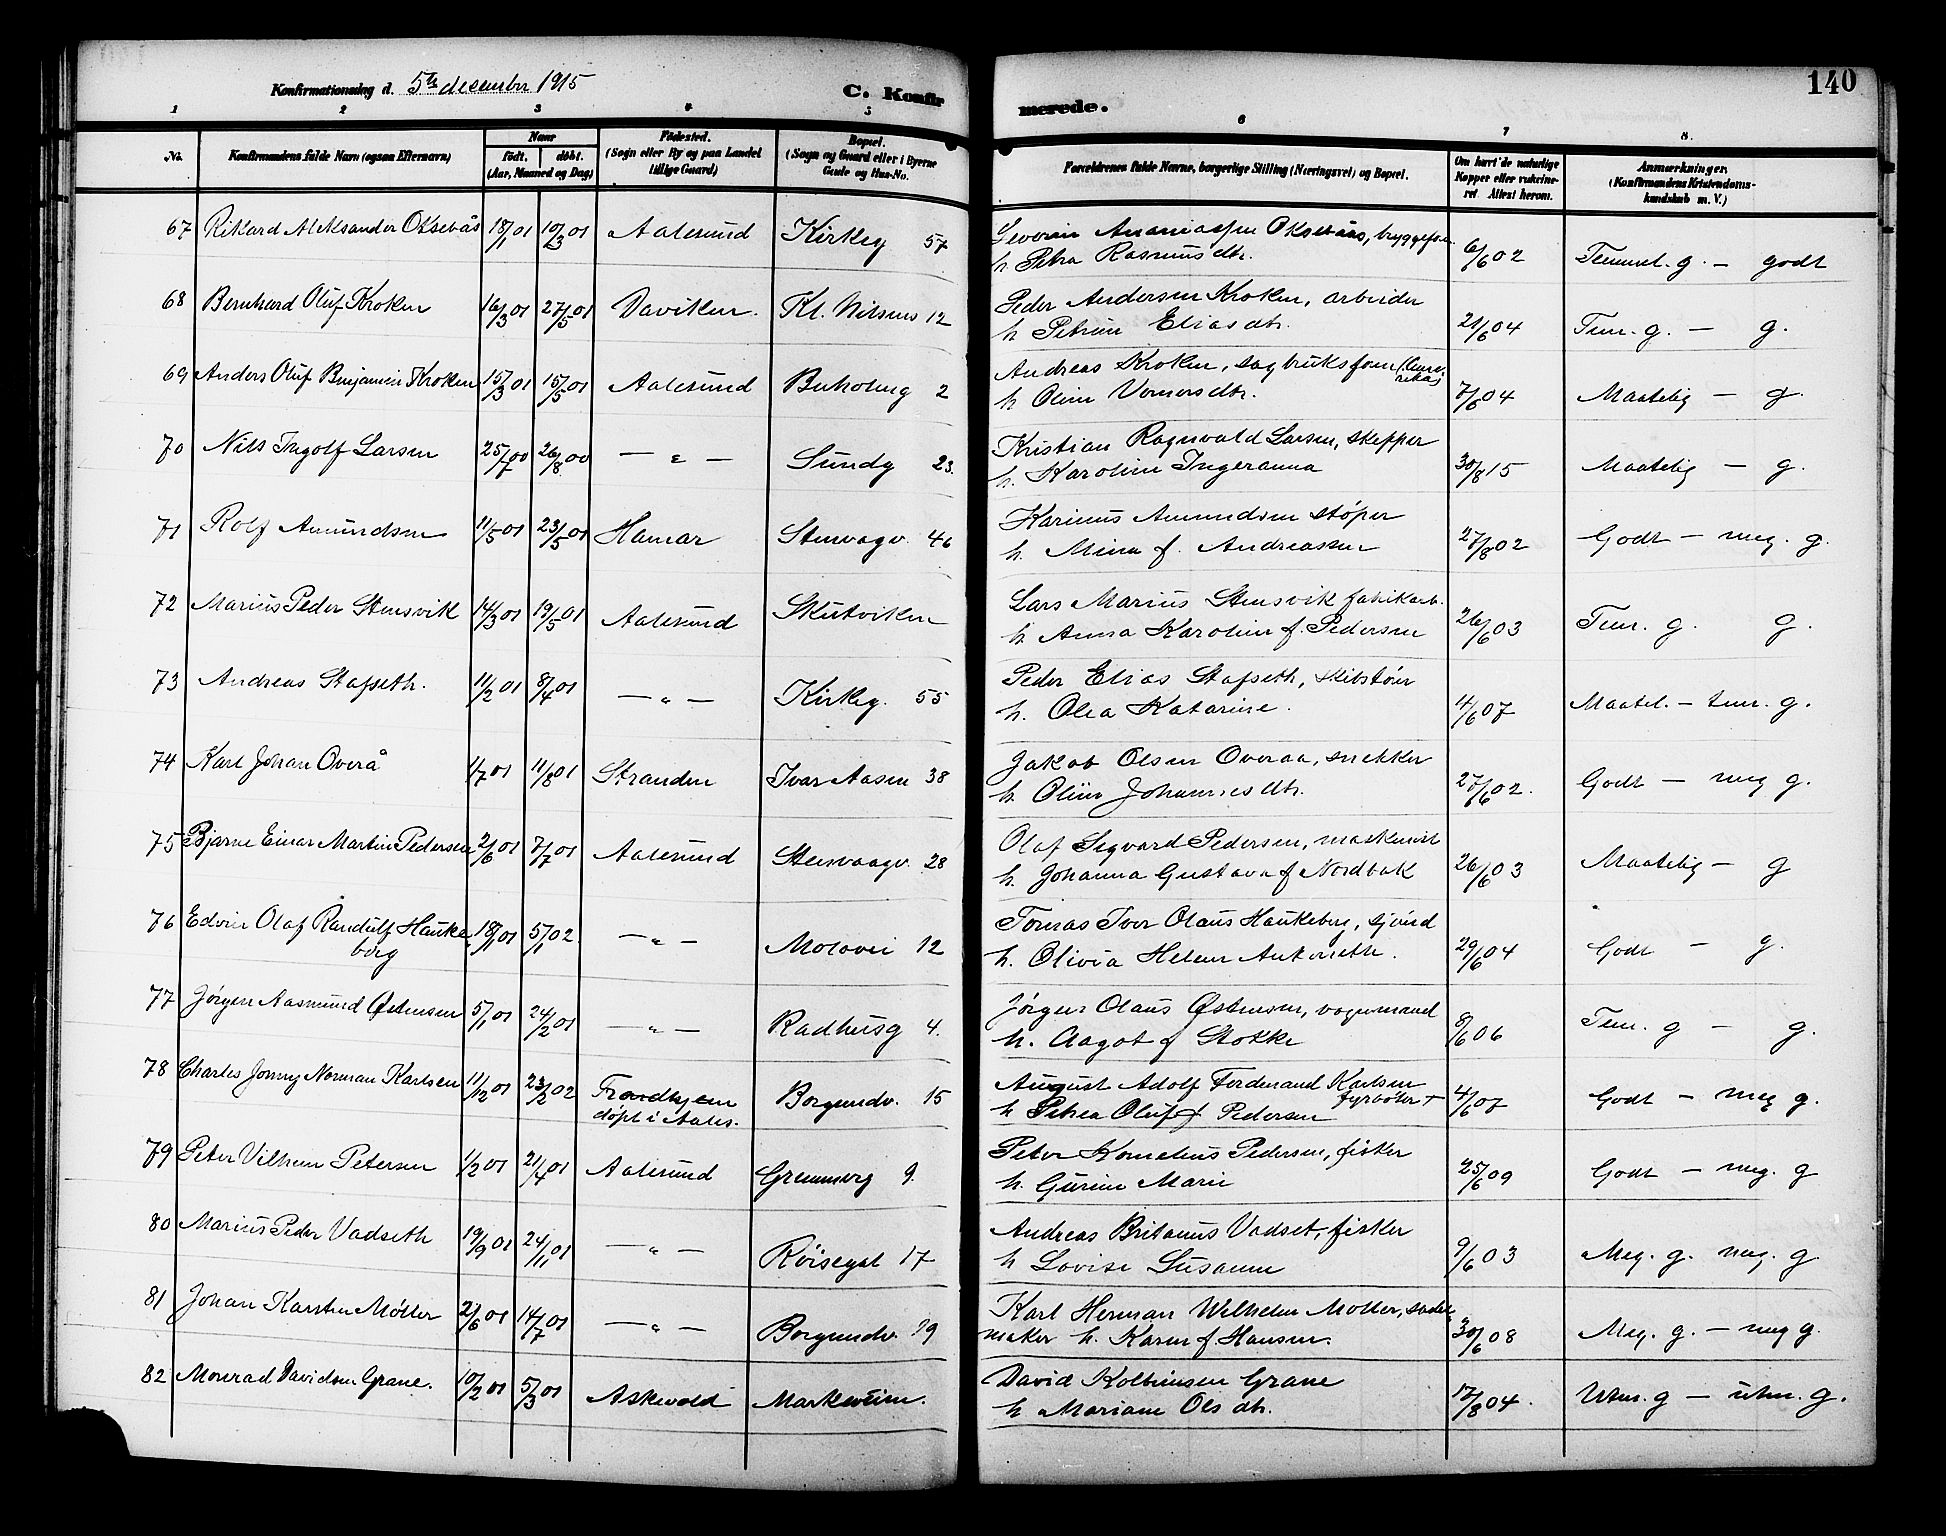 140
Konfirmationsdag d. 5te december 1915
C. Konfirmerede.
1 2 3 4 5 6 7 8.
No. Konfirmandens fulde Navn (ogsaa Efternavn) Naar født. døbt. (Aar, Maaned og Dag) Fødested. (Sogn eller By og paa Landet tillige Gaard) Bopæl. (Sogn og Gaard eller i Byerne Gade og Hus-No. Forældrenes fulde Navne, borgerlige Stilling (Næringsvei) og Bopæl. Om havt de naturlige Kopper eller vaksineret Attest herom. Anmærkninger. (Konfirmandens Kristendomskundskab m. V.)
67 Rikard Aleksander Oksebås 18/1 01 10/3 01 Aalesund Kirkeg 57 Severin Ananiassen Oksebåås, bryggef 6/6 02 Temmel. g. — godt
h. Petra Rasmusdtr.
68 Bernhard Oluf Kroken 16/3 01 27/5 01 Daviken. Kl. Nilsens 12 Peder Andersen Kroken, arbeider 21/6 04 Tem. g. — g.
h Petrine Eliasdtr.
69 Anders Oluf Benjamin Kroken 15/3 01 15/5 01 Aalesund Buholmg 2 Andreas Kroken, sagbruksform (Amerika) 7/6 04 Maatelig — g.
h Oline Vernersdtr.
70 Nils Ingolf Larsen 25/7 00 26/8 00 — " — Sundg 23. Kristian Ragnvald Larsen, skepper 30/8 15 Maatelig — g.
h. Karoline Ingeranna
71 Rolf Amundsen 11/5 01 23/5 01 Hamar Stensvagv. 46 Karinius Amundsen støper 27/8 02 Godt — meg. g.
h. Mina f. Andreassen
72 Marius Peder Stensvik 14/3 01 19/5 01 Aalesund Skutviken Lars Marius Stensvik fabrikarb. 26/6 03 Tem. g. g.
h. Anna Karoline f. Pedersen
73 Andreas Stafseth. 11/2 01 8/4 01 — " — Kirkeg. 55 Peder Elias Stafseth, skibstører 4/6 07 Maatel. — tem. g.
h. Olea Katarine.
74 Karl Johan Overå 1/7 01 11/8 01 Stranden Ivar Aasen 38 Jakob Olsen Overaa, snekker 27/6 02. Godt — meg g.
h. Oline Johannesdtr.
75 Bjarne Einar Martin Pedersen 2/6 01 7/7 01 Aalesund Stensvaagv. 28 Olaf Sigvard Pedersen, maskinist 26/6 03 Maatelig — g
h. Johanna Gustava f Nordbak
76 Edvin Olaf Randulf Haukeberg 18/11 01 5/1 02. — " — Molovei 12 Tomas Iver Olaus Haukeberg, sjømd 29/6 04 Godt — g.
h. Olivia Helene Antonette.
77 Jørgen Aasmund Østensen 5/1 01 24/2 01 — " — Radhusg 4. Jørgen Olaus Østensen, vognmand 8/6 06 Tem. g — g.
h. Aagot f Stokke
78 Charles Jonny Norman Karlsen 11/12 01 23/2 02 Trondhjem døpt i Aales. Borgundv. 15 August Adolf Ferdenand Karlsen fyrbøter + 4/6 07 Godt — meg g.
h Petrea Oluf f Pedersen
79 Peter Vilhelm Petersen 1/2 01 21/4 01 Aalesund Gremmerg 9. Peter Kornelius Pedersen, fisker 25/6 09 Godt — meg. g
h. Gurine Marie
80 Marius Peder Vadseth 19/9 01 24/11 01 — " — Röisegat 17 Andreas Britanus Vadset, fisker 9/6 03 Meg. g. meg. g
h Lovise Susanne
81 Johan Karsten Møller 21/6 01 14/7 01 — " — Borgundv. 19 Karl Herman Wilhelm Møller, sadelmaker h. Karen f. Hansen. 30/6 08 Meg. g. — meg g.
82 Monrad Davidsen Grane. 10/2 01 5/3 01 Askevold Markeveien. David Kolbeinsen Grane 17/8 04. Utm. g — utm. g.
h Mariane Olsdtr.